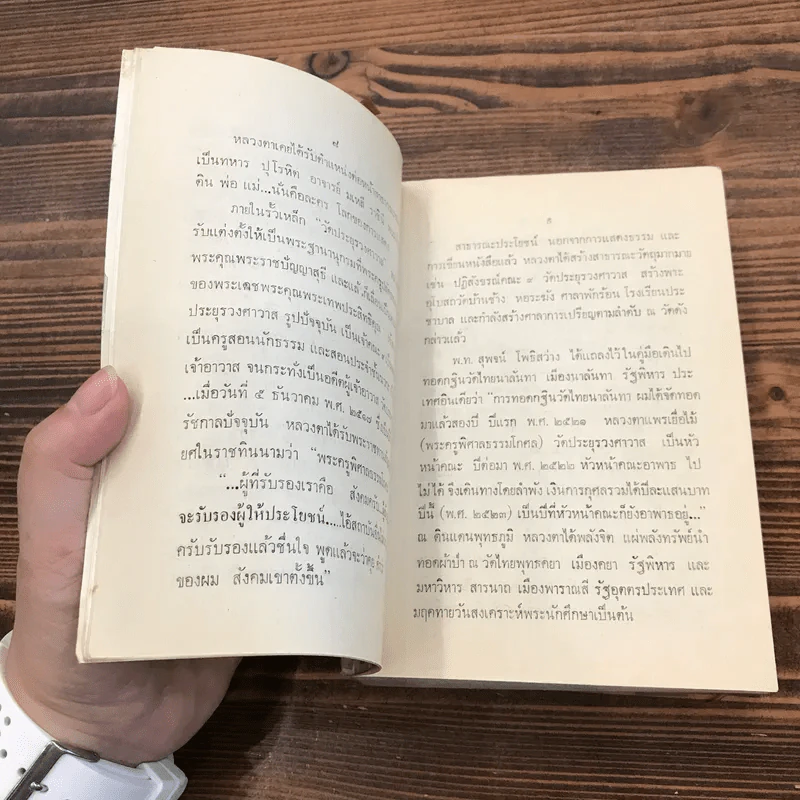 ๗
หลวงตาเคยได้รับตำแหน่งต่อหน้า
เป็นทหาร ปุโรหิต อาจารย์ มเหสี ราชินี
ดิน พ่อ แม่...นั่นคือละคร โลกของการแสดง
ภายในรั้วเหล็ก "วัดประยุรวงศาวาส"
รับแต่งตั้งให้เป็นพระฐานานุกรมที่พระครู
พระคุณพระราชปัญญาสุธี และแล้วก็เลื่อน
ของพระเดชพระคุณพระเทพประสิทธิคุณ
ประยุรวงศาวาส รูปปัจจุบัน เป็นเจ้าคณะ
เป็นครูสอนนักธรรม และสอนประจำชั้น
เจ้าอาวาส จนกระทั่งเป็นอดีตผู้เจ้าอาวาส
...เมื่อวันที่ ๕ ธันวาคม พ.ศ. ๒๕๑๘
รัชกาลปัจจุบัน หลวงตาได้รับพระราชทาน
ยศในราชทินนามว่า "พระครูพิศาลธรรมโกศล"
"...ผู้ที่รับรองเราคือ สังคมครับ
จะรับรองผู้ให้ประโยชน์....ไอ้สถาบัน
ครับรับรองแล้วชื่นใจ พูดแล้วจะว่าคุย
ของผม สังคมเขาตั้งขึ้น"
๘
สาธารณะประโยชน์ นอกจากการแสดงธรรม และ
การเขียนหนังสือแล้ว หลวงตาได้สร้างสาธารณะวัตถุมากมาย
เช่น ปฏิสังขรณ์คณะ ๙ วัดประยุรวงศาวาส สร้างพระ
อุโบสถวัดบ้านช้าง หอระฆัง ศาลาพักร้อน โรงเรียนประ
ชาบาล และกำลังสร้างศาลาการเปรียญตามลำดับ ณ วัดดัง
กล่าวแล้ว
พ.ท. สุพจน์ โพธิสว่าง ได้แถลงไว้ในคู่มือเดินไป
ทอดกฐินวัดไทยนาลันทา เมืองนาลันทา รัฐพิหาร ประ
เทศอินเดียว่า "การทอดกฐินวัดไทยนาลันทา ผมได้จัดทอด
มาแล้วสองปี ปีแรก พ.ศ. ๒๕๒๑ หลวงตาแพรเยื่อไม้
(พระครูพิศาลธรรมโกศล) วัดประยุรวงศาวาส เป็นหัว
หน้าคณะ ปีต่อมา พ.ศ. ๒๕๒๒ หัวหน้าคณะอาพาธ ไป
ไม่ได้ จึงเดินทางโดยลำพัง เงินการกุศลรวมได้ปีละแสนบาท
ปีนี้ (พ.ศ. ๒๕๒๓) เป็นปีที่หัวหน้าคณะก็ยังอาพาธอยู่..."
ณ ดินแดนพุทธภูมิ หลวงตาได้พลังจิต แผ่พลังทรัพย์นำ
ทอดผ้าป่า ณ วัดไทยพุทธคยา เมืองคยา รัฐพิหาร และ
มหาวิหาร สารนาถ เมืองพาราณสี รัฐอุตตรประเทศ และ
มฤคทายวันสงเคราะห์พระนักศึกษาเป็นต้น